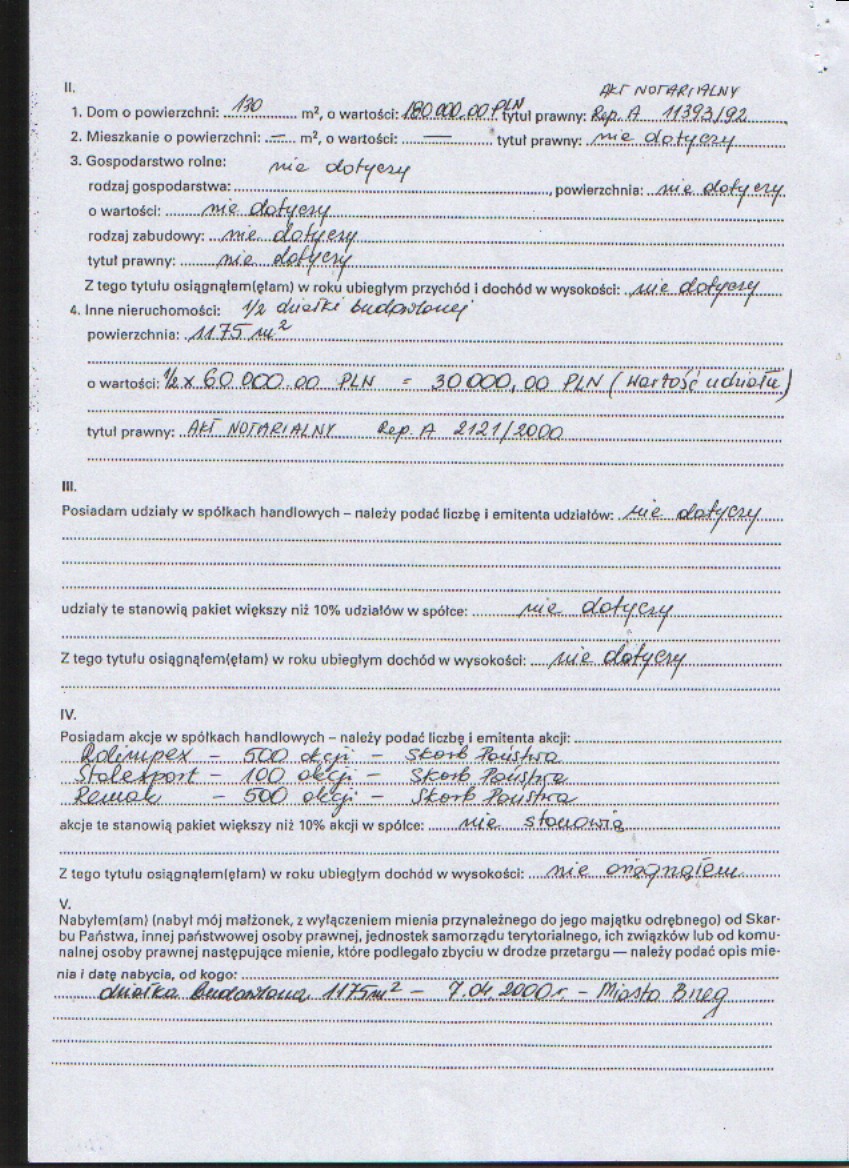 II.
AKT NOTARIALNY
1. Dom o powierzchni: 130 m², o wartości: 180 000,00 PLN tytuł prawny: Rep. A 11393/92
2. Mieszkanie o powierzchni: — m², o wartości: — tytuł prawny: nie dotyczy
3. Gospodarstwo rolne: nie dotyczy
rodzaj gospodarstwa: , powierzchnia: nie dotyczy
o wartości: nie dotyczy
rodzaj zabudowy: nie dotyczy
tytuł prawny: nie dotyczy
Z tego tytułu osiągnąłem(ęłam) w roku ubiegłym przychód i dochód w wysokości: nie dotyczy
4. Inne nieruchomości: 1/2 działki budowlanej
powierzchnia: 1175 m²
o wartości: 1/2 x 60 000.00 PLN = 30 000,00 PLN (wartość udziału)
tytuł prawny: AKT NOTARIALNY Rep. A 2121/2000
III.
Posiadam udziały w spółkach handlowych – należy podać liczbę i emitenta udziałów: nie dotyczy
udziały te stanowią pakiet większy niż 10% udziałów w spółce: nie dotyczy
Z tego tytułu osiągnąłem(ęłam) w roku ubiegłym dochód w wysokości: nie dotyczy
IV.
Posiadam akcje w spółkach handlowych – należy podać liczbę i emitenta akcji:
Rolimpex – 500 akcji – Skarb Państwa
Stalexport – 100 akcji – Skarb Państwa
Remak – 500 akcji – Skarb Państwa
akcje te stanowią pakiet większy niż 10% akcji w spółce: nie stanowią
Z tego tytułu osiągnąłem(ęłam) w roku ubiegłym dochód w wysokości: nie osiągnąłem
V.
Nabyłem(am) (nabył mój małżonek, z wyłączeniem mienia przynależnego do jego majątku odrębnego) od Skar-
bu Państwa, innej państwowej osoby prawnej, jednostek samorządu terytorialnego, ich związków lub od komu-
nalnej osoby prawnej następujące mienie, które podlegało zbyciu w drodze przetargu — należy podać opis mie-
nia i datę nabycia, od kogo:
działka budowlana 1175m² – 7.04.2000r. – Miasto Brzeg